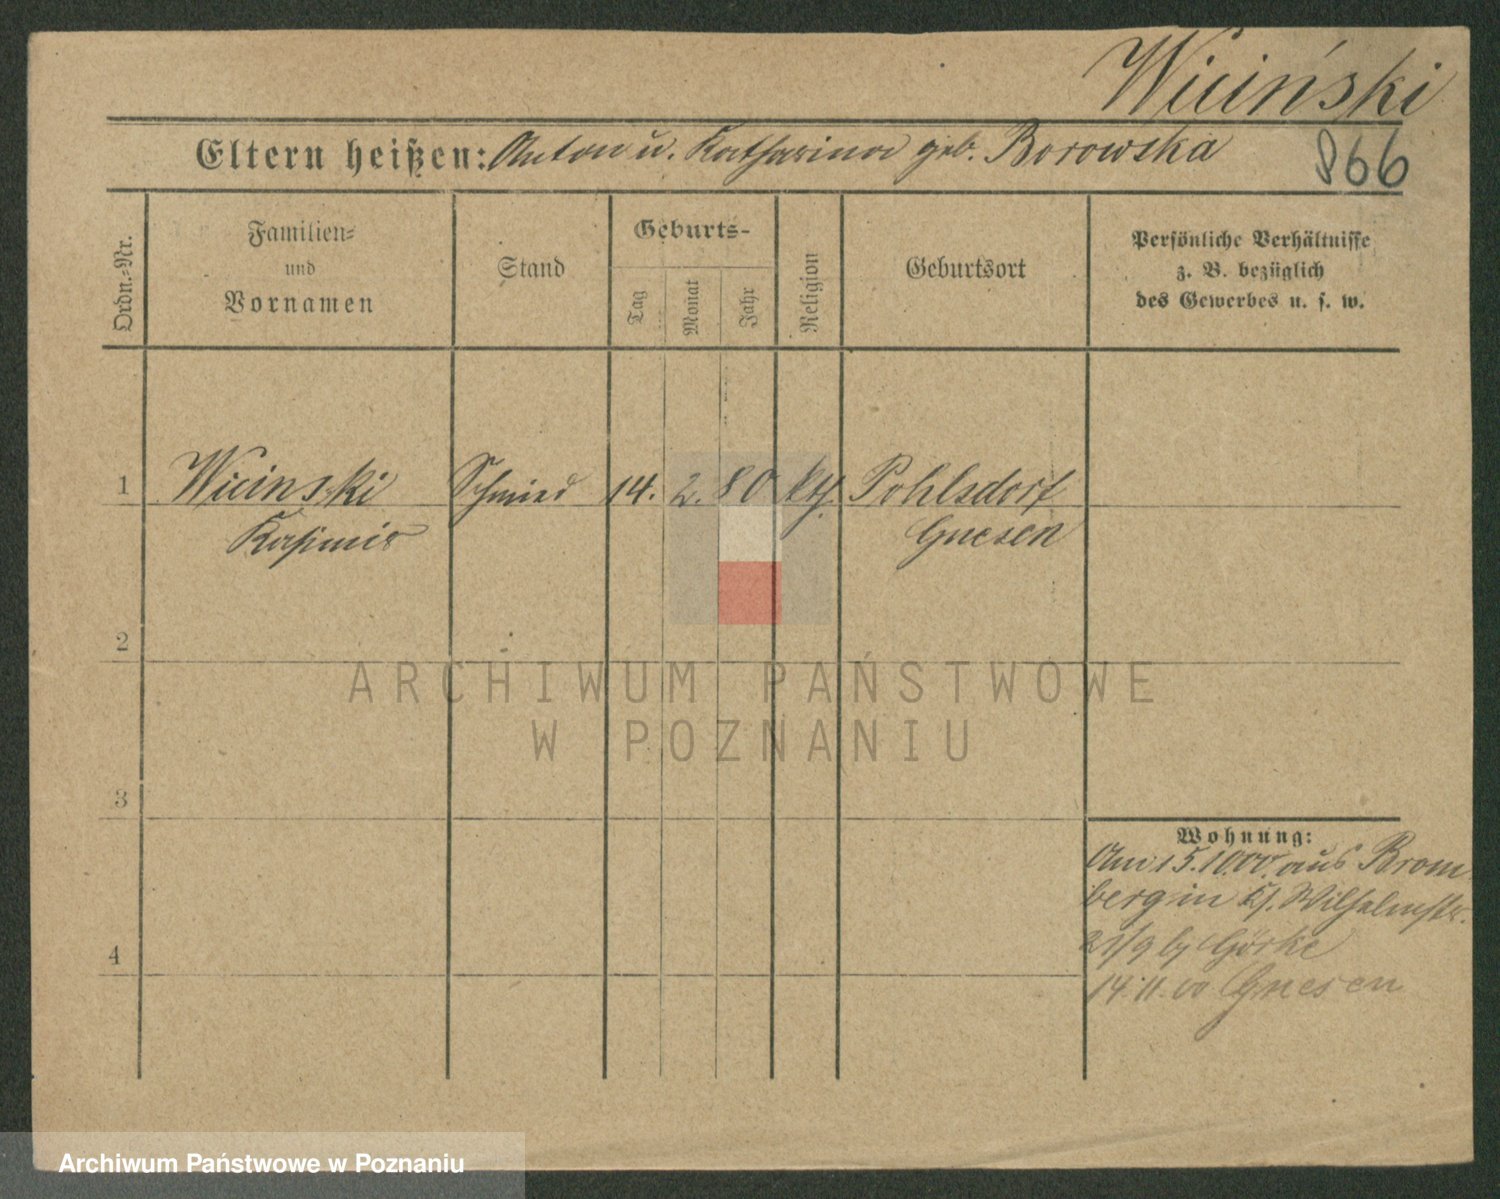 Wiciński
Eltern heißen: Anton u. Katharina geb. Borowska
866
Ordn.-Nr.
Familien-
und
Vornamen
Stand
Geburts-
Tag
Monat
Jahr
Religion
Geburtsort
Persönliche Verhältnisse
z. B. bezüglich
des Gewerbes u. s. w.
1 Wicinski Schmied 14. 2. 80 kth. Pohlsdorf
Kasimir Gnesen
2
3
4
Wohnung:
Am 15.10.00. aus Brom
berg in Wilhelmstr.
21/9 Görke
14.11.00 Gnesen
ARCHIWUM PAŃSTWOWE
W POZNANIU
Archiwum Państwowe w Poznaniu